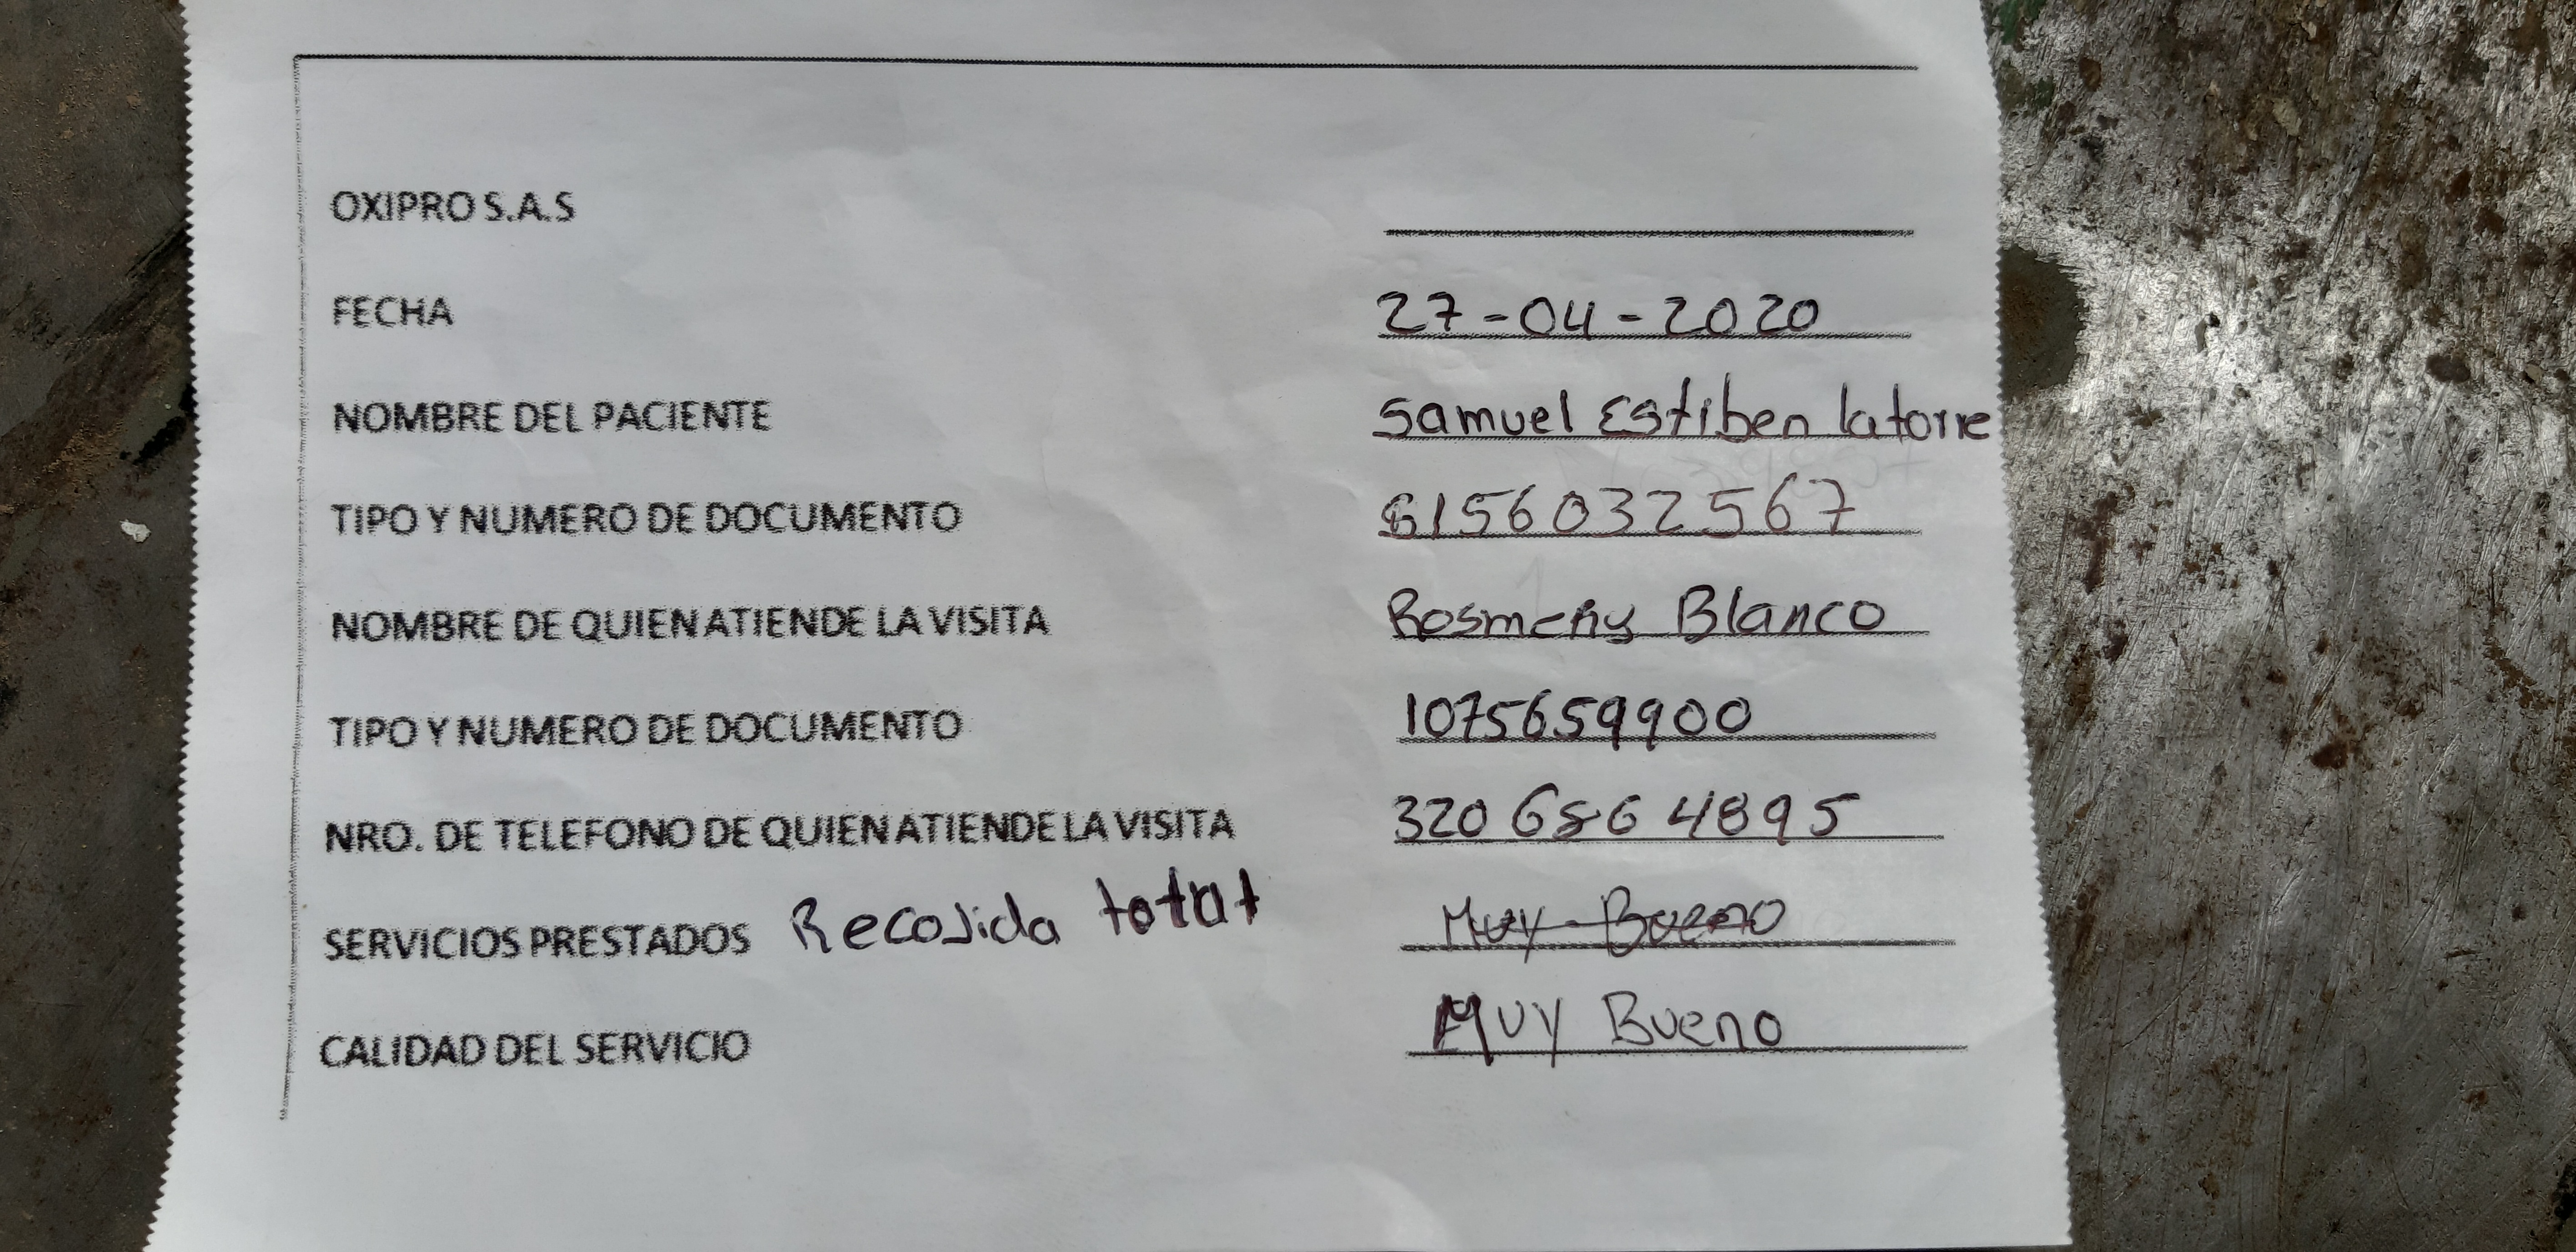 OXIPRO S.A.S
FECHA 27-04-2020
NOMBRE DEL PACIENTE Samuel Estiben latorre
TIPO Y NUMERO DE DOCUMENTO 6156032567
NOMBRE DE QUIEN ATIENDE LA VISITA Rosmeny Blanco
TIPO Y NUMERO DE DOCUMENTO 1075659900
NRO. DE TELEFONO DE QUIEN ATIENDE LA VISITA 320 686 4895
SERVICIOS PRESTADOS Recojida total Muy Bueno
CALIDAD DEL SERVICIO MUY Bueno